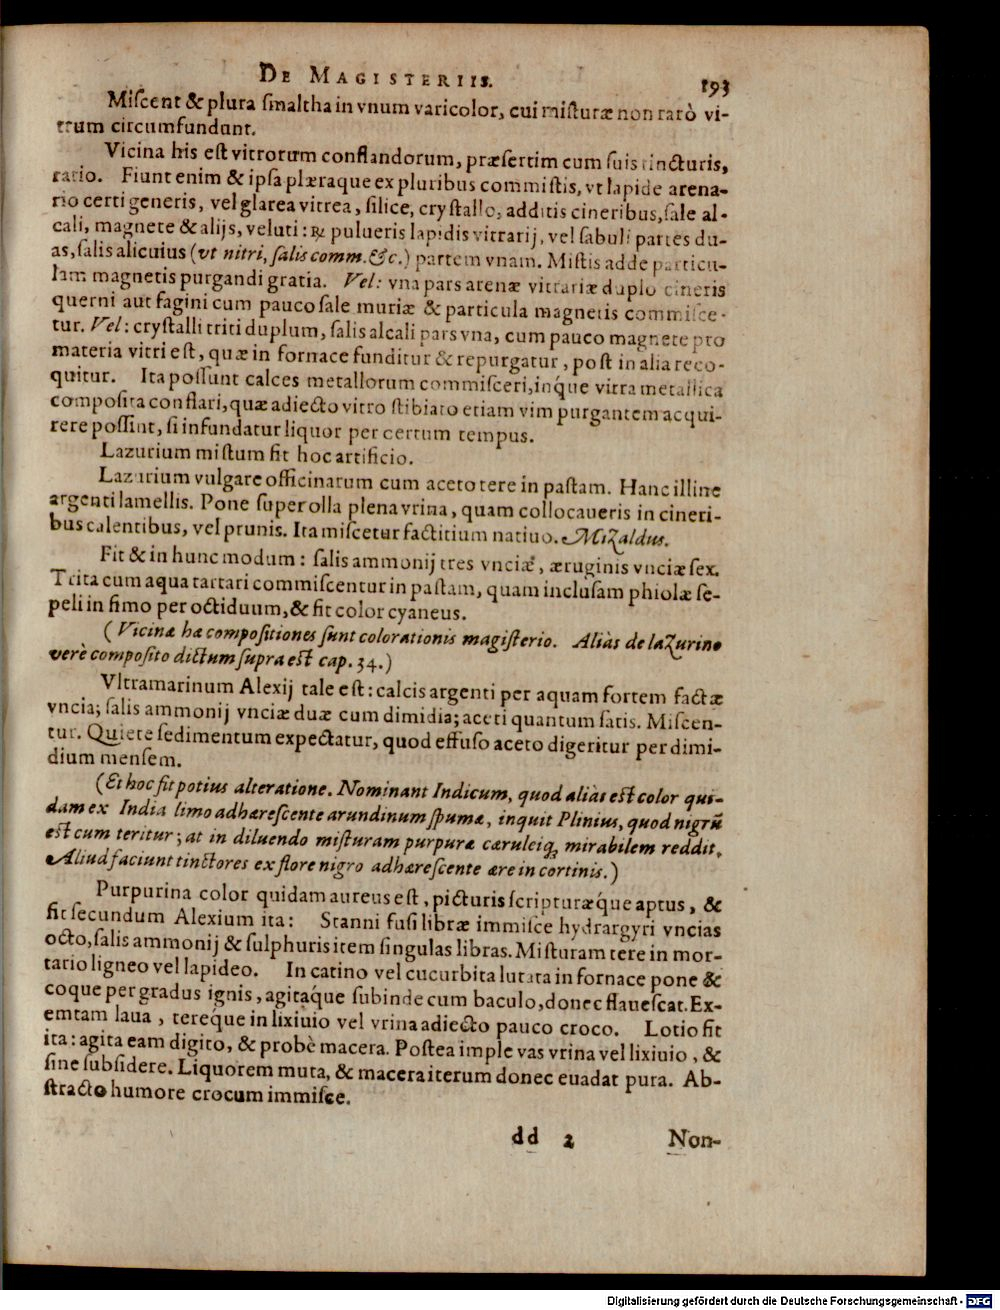 DE MAGISTERIIS. 193
Miſcent & plura ſmaltha in vnum varicolor, cui miſturæ non rarò vi-
trum circumfundunt.
Vicina his eſt vitrorum conflandorum, præſertim cum ſuis tincturis,
ratio. Fiunt enim & ipſa plæraque ex pluribus commiſtis, vt lapide arena-
rio certi generis, vel glarea vitrea, ſilice, cryſtallo, additis cineribus, ſale al-
cali, magnete & alijs, veluti: ℞ pulueris lapidis vitrarij, vel ſabuli partes du-
as, ſalis alicuius (vt nitri, ſalis comm. &c.) partem vnam. Miſtis adde particu-
lam magnetis purgandi gratia. Vel: vna pars arenæ vitrariæ duplo cineris
querni aut fagini cum pauco ſale muriæ & particula magnetis commiſce-
tur. Vel: cryſtalli triti duplum, ſalis alcali pars vna, cum pauco magnete pro
materia vitri eſt, quæ in fornace funditur & repurgatur, poſt in alia reco-
quitur. Ita poſſunt calces metallorum commiſceri, inq́ue vitra metallica
compoſita conflari, quæ adiecto vitro ſtibiato etiam vim purgantem acqui-
rere poſſint, ſi infundatur liquor per certum tempus.
Lazurium miſtum fit hoc artificio.
Lazurium vulgare officinarum cum aceto tere in paſtam. Hanc illine
argenti lamellis. Pone ſuper olla plena vrina, quam collocaueris in cineri-
bus calentibus, vel prunis. Ita miſcetur factitium natiuo. Mizaldus.
Fit & in hunc modum: ſalis ammonij tres vnciæ, æruginis vnciæ ſex.
Trita cum aqua tartari commiſcentur in paſtam, quam incluſam phiolæ ſe-
peli in fimo per octiduum, & fit color cyaneus.
(Vicinæ hæ compoſitiones ſunt colorationis magiſterio. Aliàs de lazurino
verè compoſito dictum ſupra eſt cap. 34.)
Vltramarinum Alexij tale eſt: calcis argenti per aquam fortem factæ
vncia; ſalis ammonij vnciæ duæ cum dimidia; aceti quantum ſatis. Miſcen-
tur. Quiete ſedimentum expectatur, quod effuſo aceto digeritur per dimi-
dium menſem.
(Et hoc fit potius alteratione. Nominant Indicum, quod aliàs eſt color qui-
dam ex India limo adhæreſcente arundinum ſpumæ, inquit Plinius, quod nigrũ
eſt cum teritur; at in diluendo miſturam purpuræ cæruleiq́ mirabilem reddit.
Aliud faciunt tinctores ex flore nigro adhæreſcente ære in cortinis.)
Purpurina color quidam aureus eſt, picturis ſcripturæq́ue aptus, &
fit ſecundum Alexium ita: Stanni fuſi libræ immiſce hydrargyri vncias
octo, ſalis ammonij & ſulphuris item ſingulas libras. Miſturam tere in mor-
tario ligneo vel lapideo. In catino vel cucurbita lutata in fornace pone &
coque per gradus ignis, agitaq́ue ſubinde cum baculo, donec flaueſcat. Ex-
emtam laua, tereq́ue in lixiuio vel vrina adiecto pauco croco. Lotio fit
ita: agita eam digito, & probè macera. Poſtea imple vas vrina vel lixiuio, &
ſine ſubſidere. Liquorem muta, & macera iterum donec euadat pura. Ab-
ſtracto humore crocum immiſce.
dd 2 Non-
Digitalisierung gefördert durch die Deutsche Forschungsgemeinschaft - DFG